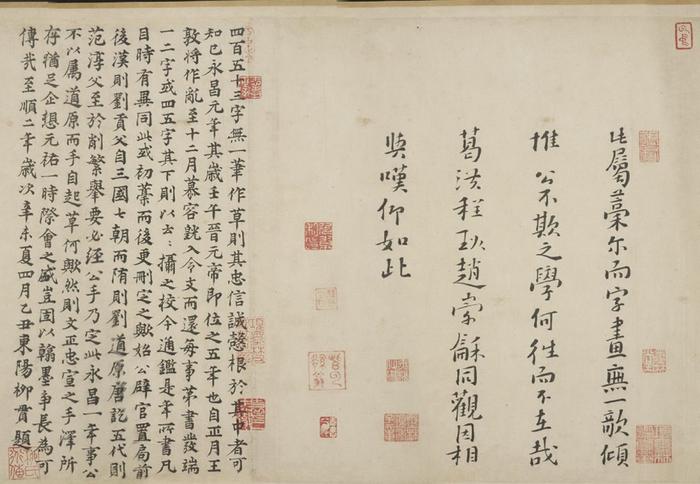 此屬藁尓而字畫無一欹傾
推公不欺之學何往而不在哉
葛洪程珌趙崇龢同觀因相
與嘆仰如此
四百五十三字無一筆作草則其忠信誠慤根於其中者可
知已永昌元年其歲壬午晉元帝即位之五年也自正月王
敦將作亂至十二月慕容皝入令支而還每事第書發端
一二字或四五字其下則以云〻攝之校今通鑑是年所書凡
目時有異同此或初藁而後更刪定之歟始公辟官置局前
後漢則劉貢父自三國七朝而隋則劉道原唐訖五代則
范淳父至於削繁舉要必經公手乃定此永昌一年事公
不以屬道原而手自起草何歟然則文正忠宣之手澤所
存猶足企想元祐一時際會之盛豈固以翰墨事長為可
傳哉至順二年歲次辛未夏四月乙丑東陽柳貫題